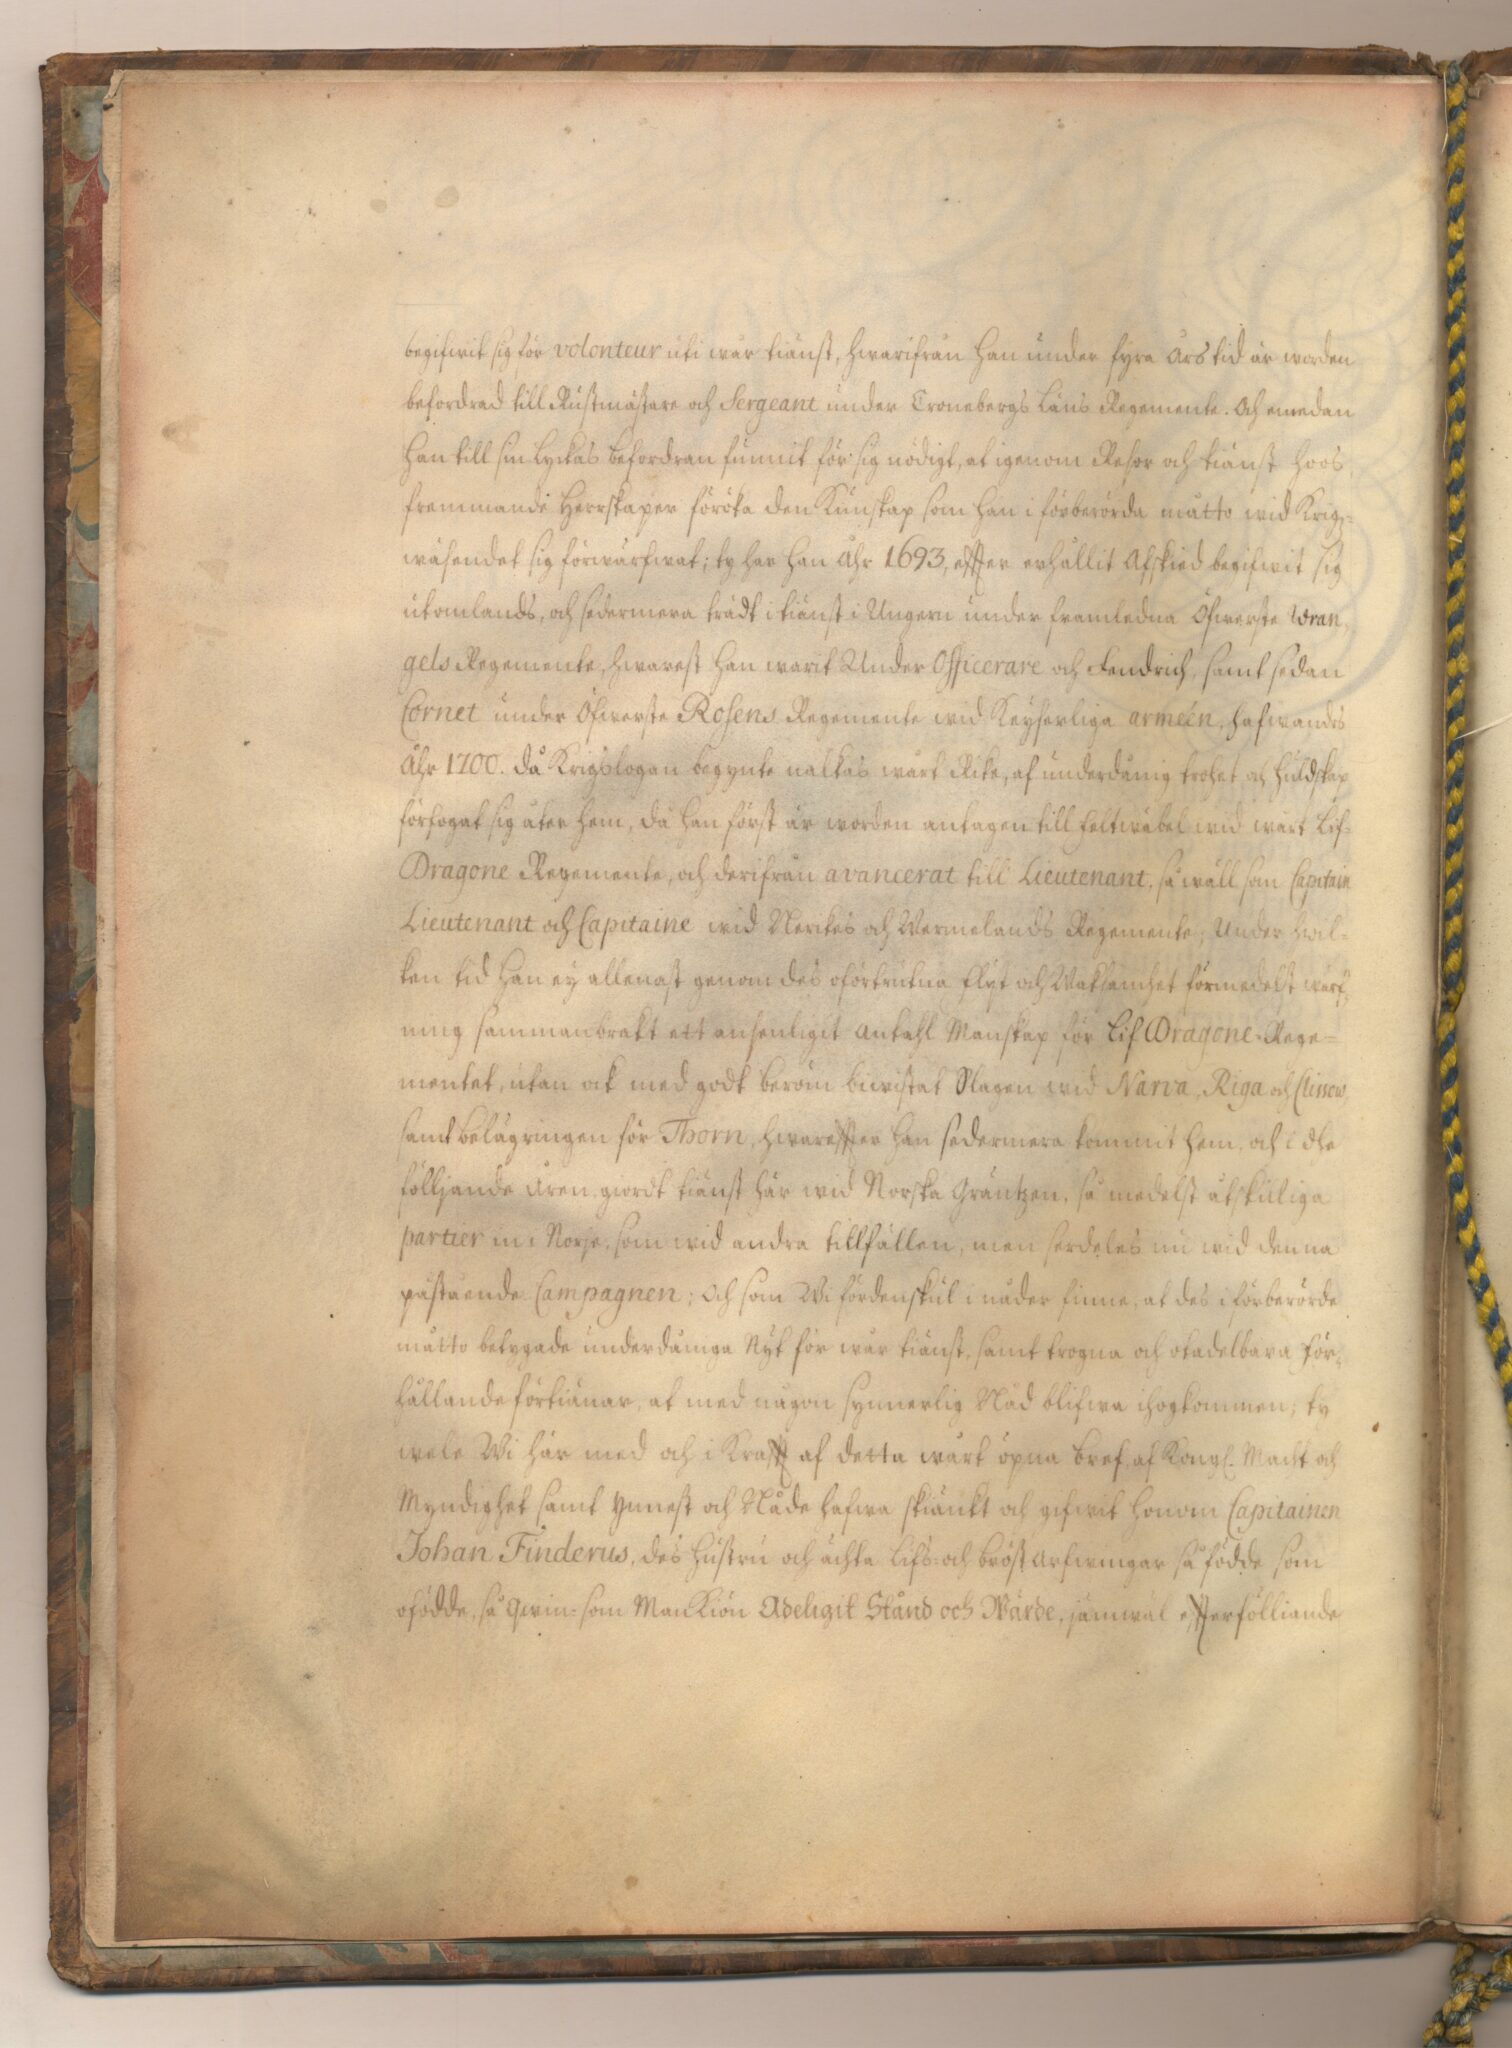 begifwit sig för volonteur uti wår tiänst, hwarifrån han under fyra års tid är worden
befordrad till Rustmästare och Sergeant under Cronebergs Läns Regemente. Och emedan
han till sin lyckas befordran funnit för sig nödigt, at igenom Resor och tiänst hoos
fremmande Herrskaper föröka den Kunskap som han i förberörda måtto wid Krigz-
wäsendet sig förwärfwat; ty har han Åhr 1693, effter erhållit Afskied begifwit sig
utomlands, och sedermera trädt i tiänst i Ungern under framledna Öfwerste Wran-
gels Regemente, hwarest han warit Under Officerare och Fendrich, samt sedan
Cornet under Öfwerste Rosens Regemente wid Keyserliga arméen, hafwandes
Åhr 1700. då Krigslogan begynte nalkas wårt Rike, af underdånig trohet och huldskap
förfogat sig åter hem, då han först är worden antagen till Feltwäbel wid wårt Lif-
Dragone Regemente, och derifrån avancerat till Lieutenant, så wäll som Capitain
Lieutenant och Capitaine wid Nerikes och Wermelands Regemente; Under hwil-
ken tid han ey allenast genom des oförtrutna flyt och Waksamhet förmedelst wärf-
ning sammanbrakt ett ansenligit Antahl Manskap för Lif Dragone-Rege-
mentet, utan ock med godt beröm biwistat Slagen wid Narva, Riga och Clissow,
samt belägringen för Thorn, hwareffter han sedermera kommit hem, och i dhe
följjande åren giordt tiänst här wid Norska Gräntzen, så medelst åtskilliga
partier in i Norje, som wid andra tillfällen, men serdeles nu wid denna
påstående Campagnen; Och som Wi fördenskul i nåder finne, at des i förberörde
måtto betygade underdåniga Nijt för wår tiänst, samt trogna och otadelbara för-
hållande förtiänar, at med någon synnerlig Nåd blifwa ihogkommen; ty
wele Wi här med och i Krafft af detta wårt öpna bref, af Kongl. Macht och
Myndighet samt ynnest och Nåde hafwa skiänkt och gifwit honom Capitainen
Johan Finderus, des Hustru och ächta Lifs- och bröst Arfwingar så födde som
ofödde, så Qwin- som Mankiön Adeligit Stånd och Wärde, jämwäl effterfölliande